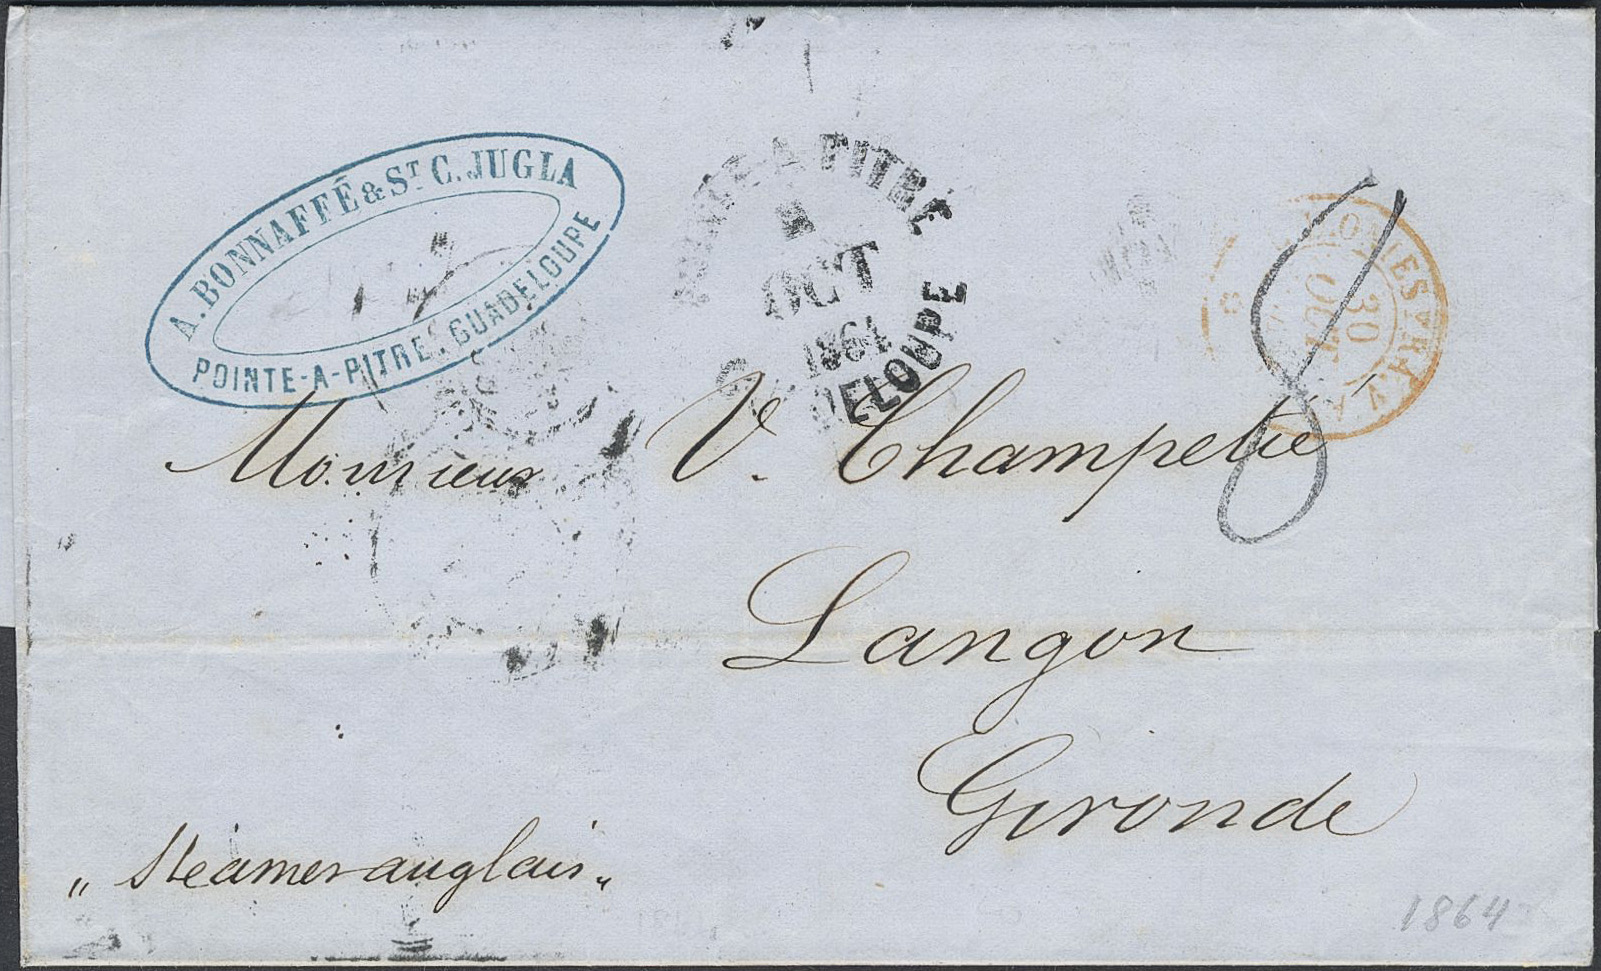 A. BONNAFFÉ & ST C. JUGLA
POINTE-A-PITRE. GUADELOUPE
POINTE-A-PITRE
OCT
1864
GUADELOUPE
COLONIES V. R. A. V.
30
OCT
8
Monsieur V. Champetié
Langon
Gironde
„ Steamer anglais „
1864